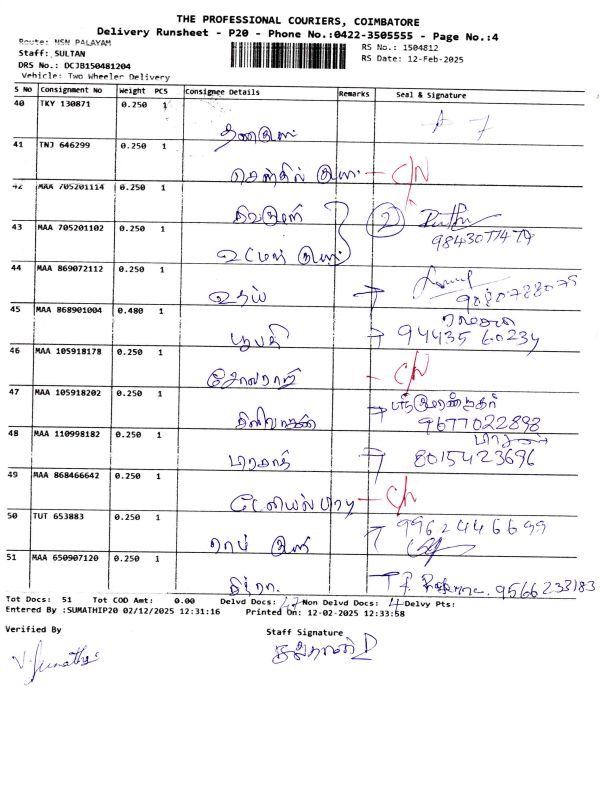 THE PROFESSIONAL COURIERS, COIMBATORE
Delivery Runsheet - P20 - Phone No.:0422-3505555 - Page No.:4
Route: NSN PALAYAM
Staff: SULTAN
DRS No.: DCJB150481204
Vehicle: Two Wheeler Delivery
RS No.: 1504812
RS Date: 12-Feb-2025
S No Consignment No Weight PCS Consignee Details Remarks Seal & Signature
40 TKY 130871 0.250 1
41 TNJ 646299 0.250 1
செந்தில் குமா C/N
42 MAA 705201114 0.250 1
43 MAA 705201102 0.250 1
2
9843077479
44 MAA 869072112 0.250 1
உதய் 9080788079
45 MAA 868901004 0.480 1
பூபதி 94435 60234
46 MAA 105918178 0.250 1
C/N
47 MAA 105918202 0.250 1
9677022898
48 MAA 110998182 0.250 1
8015423696
49 MAA 868466642 0.250 1
C/N
50 TUT 653883 0.250 1
ராம் 9962446699
51 MAA 650907120 0.250 1
9566233183
Tot Docs: 51 Tot COD Amt: 0.00 Delvd Docs: 47 Non Delvd Docs: 4 Delvy Pts:
Entered By :SUMATHIP20 02/12/2025 12:31:16 Printed On: 12-02-2025 12:33:58
Verified By Staff Signature
V. Sumathi